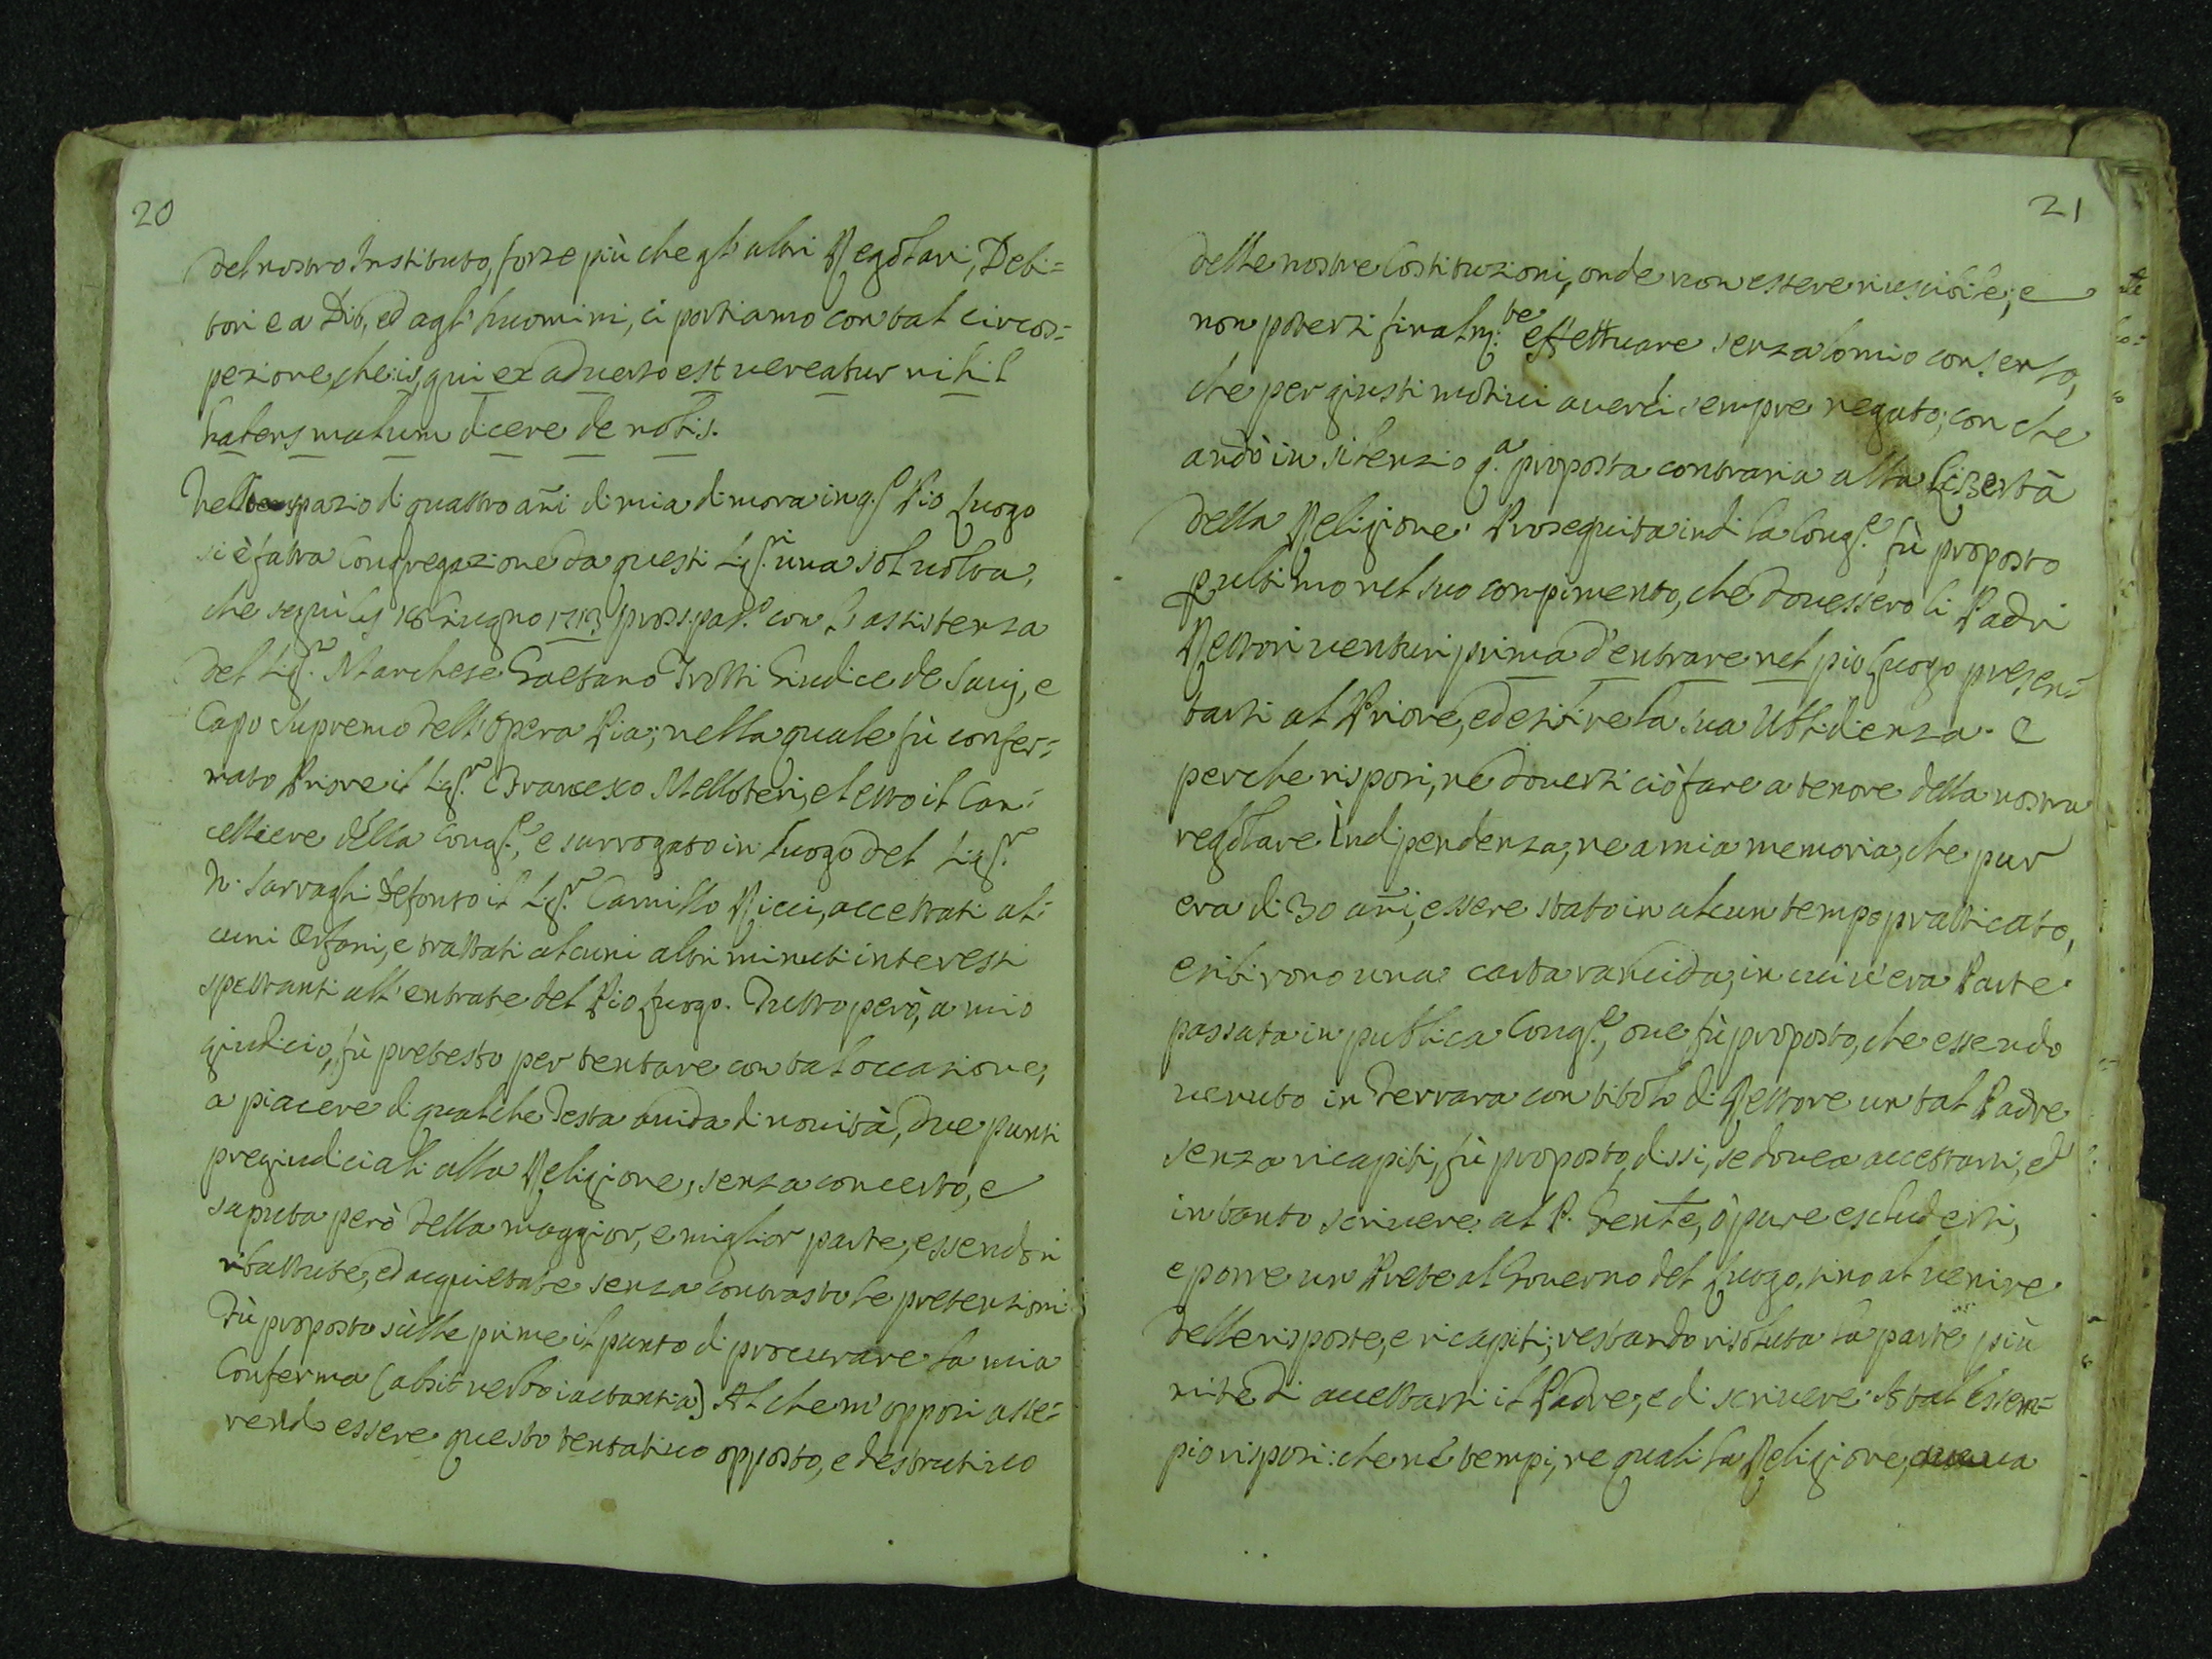 20
del nostro Instituto, forse più che gl'altri Regolari, Debi=
tori e a Dio, ed agl'huomini, ci portiamo con tal circos=
pezione, che: is, qui ex aduerso est uereatur nihil
habens malum dicere de nobis.
Nello spazio di quattro añi di mia dimora in q.sto Pio Luogo
si è fatta Congregazione da questi Sig.ri una sol uolta,
che seguì li 18 Giugno 1713 pross. pass.o con l'assistenza
del Sig.r Marchese Gaetano Trotti Giudice de Sauij, e
Capo supremo dell'Opera Pia; nella quale fù confer=
mato Priore il Sig.r Francesco Melloteri, eletto il Can=
celliere della Cong.e, e surrogato in Luogo del Sig.r
N. Sarraghi defonto il Sig.r Camillo Ricci, accettati al=
cuni Orfani, e trattati alcuni altri minuti interessi
spettanti all'entrate del Pio Luogo. Tutto però, a mio
giudicio, fù pretesto per tentare con tal occasione,
a piacere di qualche Testa auida di nouità, due punti
pregiudiciali alla Religione, senza concerto, e
saputa però della maggior, e miglior parte, essendosi
ribattute, ed acquietate senza contrasto le pretensioni
Fù proposto sùlle prime il punto di procurare la mia
Conferma (absit uerbo iactantia) Al che m'opposi asse=
rendo essere questo tentatiuo opposto, e destrutiuo
21
delle nostre Costituzioni, onde non essere riuscibile; e
non potersi finalm.te effettuare senza lo mio consenso,
che per giusti motiui auerli sempre negato; con che
andò in silenzio q.a proposta contraria alla Libertà
della Religione. Proseguita indi la Cong.e fù proposto
p ultimo nel suo compimento, che douessero li Padri
Rettori uenturi prima d'entrare nel pio Luogo presen=
tarsi al Priore, ed esibire la sua Ubbidienza. E
perche risposi, ne douersi ciò fare a tenore della nostra
regolare Indipendenza; ne a mia memoria, che pur
era di 30 añi, essere stato in alcun tempo pratticato,
esibirono una carta rancida, in cui u'era Parte
passata in publica Cong.e, oue fù proposto, che essendo
uenuto in Ferrara con titolo di Rettore un tal Padre
senza ricapiti, fù proposto, dissi, se douea accettarsi, ed
intanto scriuere al P. Gen͠le, ò pure escludersi,
e porre un Prete al Gouerno del Luogo, sino al uenire
delle risposte, e ricapiti; restando risoluta la parte più
mite di accettarsi il Padre, e di scriuere. A tal Essem=
pio risposi: che nè tempi, ne quali la Religione, aueua